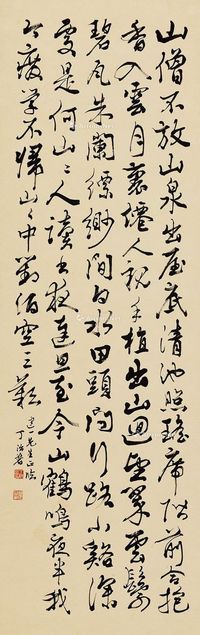 山僧不放山泉出屋底清池照瑤席階前合抱
香入雲月裏僊人親手植出山迴望翠雲鬟
碧瓦朱闌縹緲間白水田頭問行路小谿深
處是何山々人讀書夜達旦至今山鶴鳴夜半我
今廢學不歸山々中對酒空三歎
先生正
丁治磐